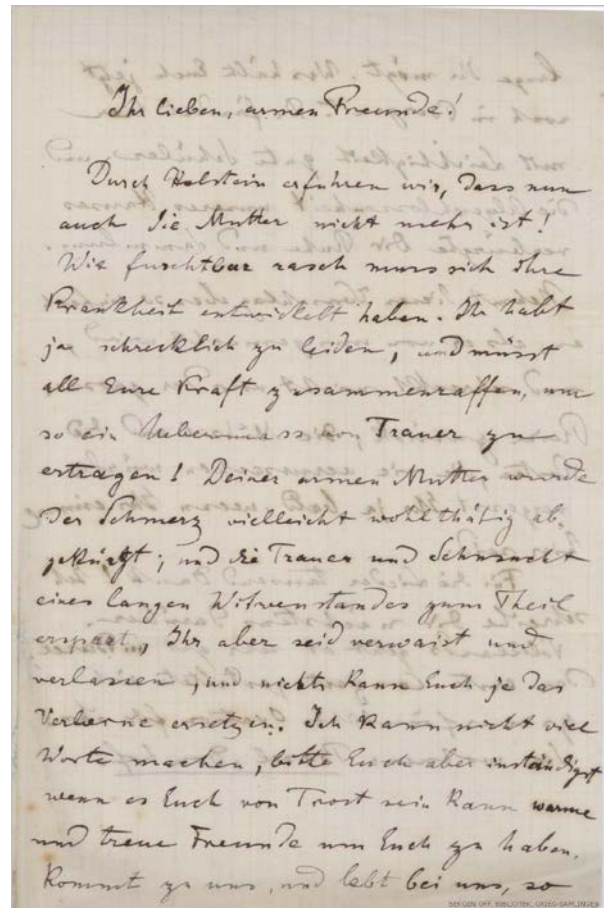 Ihr lieben, armen Freunde!
Durch Holstein erfuhren wir, dass nun
auch die Mutter nicht mehr ist!
Wie furchtbar rasch muss sich ihre
Krankheit entwickelt haben. Ihr habt
ja schrecklich zu leiden, und müsst
all Eure Kraft zusammenraffen, um
so ein Uebermass von Trauer zu
ertragen! Deiner armen Mutter wurde
der Schmerz vielleicht wohlthätig ab-
gekürzt; und die Trauer und Sehnsucht
eines langen Witwenstandes zum Theil
erspart, Ihr aber seid verwaist und
verlassen, und nichts kann Euch je das
Verlorne ersetzen. Ich kann nicht viel
Worte machen, bitte Euch aber inständigst
wenn es Euch von Trost sein kann warme
und treue Freunde um Euch zu haben,
kommt zu uns, und lebt bei uns, so
BERGEN OFF. BIBLIOTEK, GRIEG-SAMLINGEN